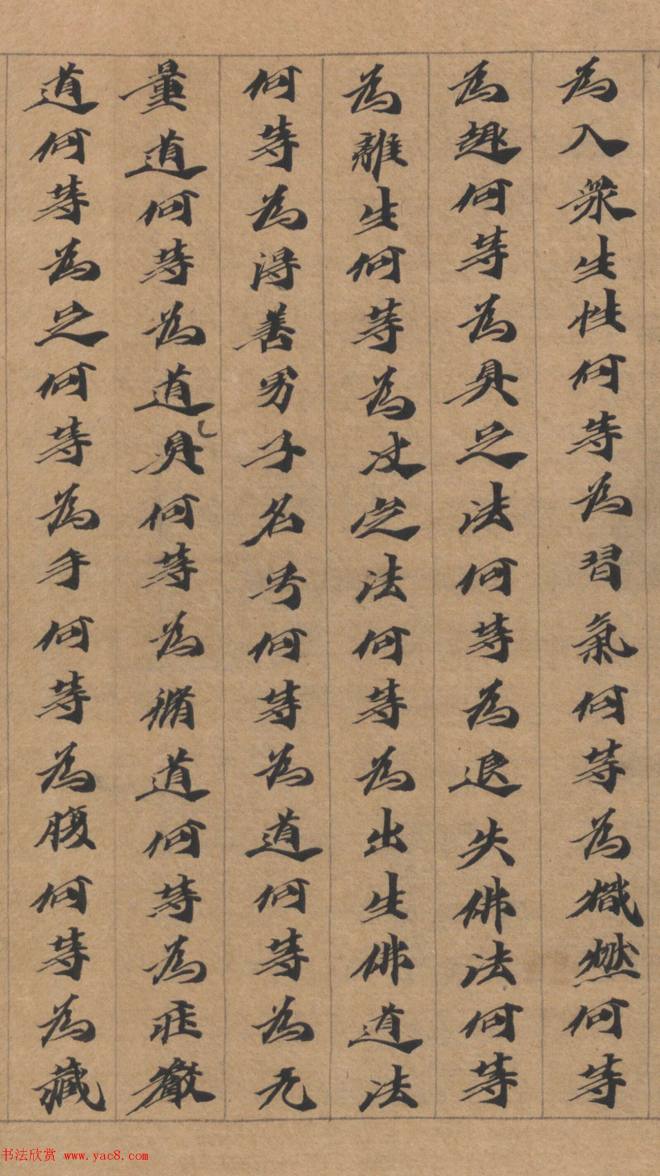 為入衆生性何等為習氣何等為熾然何等
為趣何等為具足法何等為退失佛法何等
為離生何等為决定法何等為出生佛道法
何等為得善男子名号何等為道何等為无
量道何等為道具何等為脩道何等為莊嚴
道何等為足何等為手何等為腹何等為藏
书法欣赏 www.yac8.com